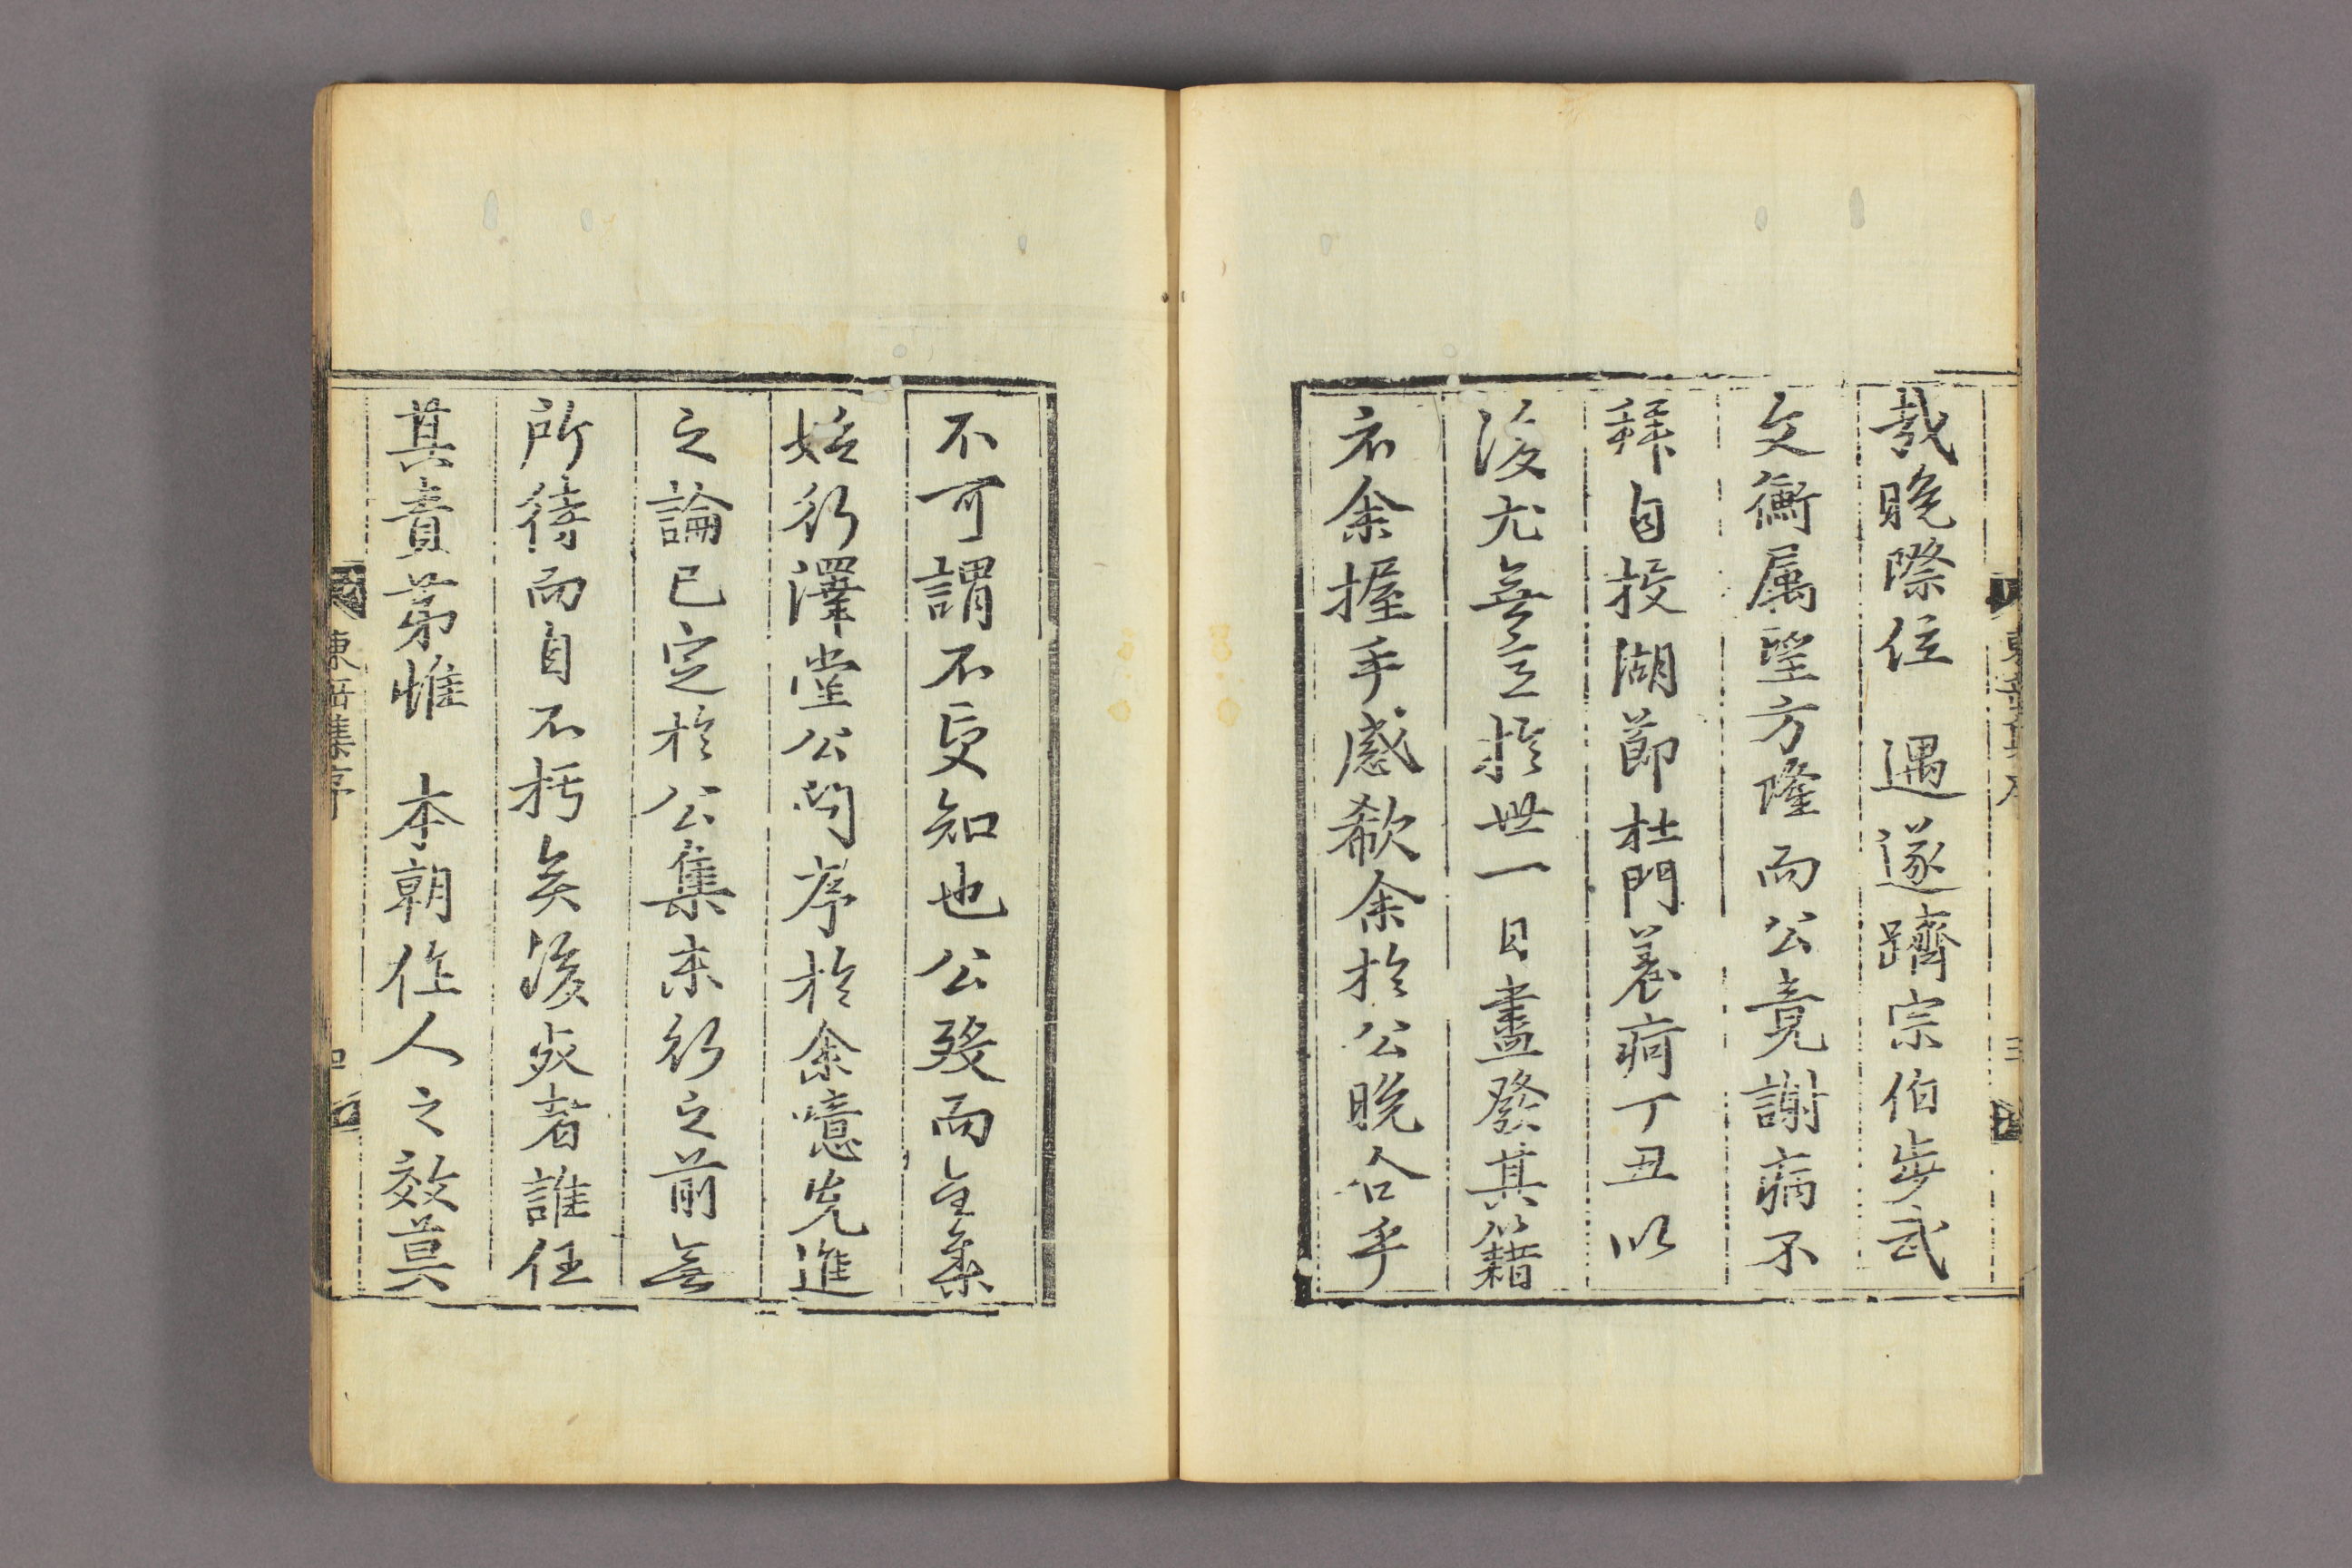 哉晚際位 遇遂躋宗伯步武
文衡属望方隆而公竟謝病不
拜自投湖節杜門養痾丁丑以
後尤無意於世一日盡發其籍
示余握手感欷余於公晚合乎
不可謂不受知也公歿而全集
始行澤堂公問序於余噫先進
之論已定於公集未行之前無
所待而自不朽矣後死者誰任
其責第惟 本朝作人之效莫
東岳集序